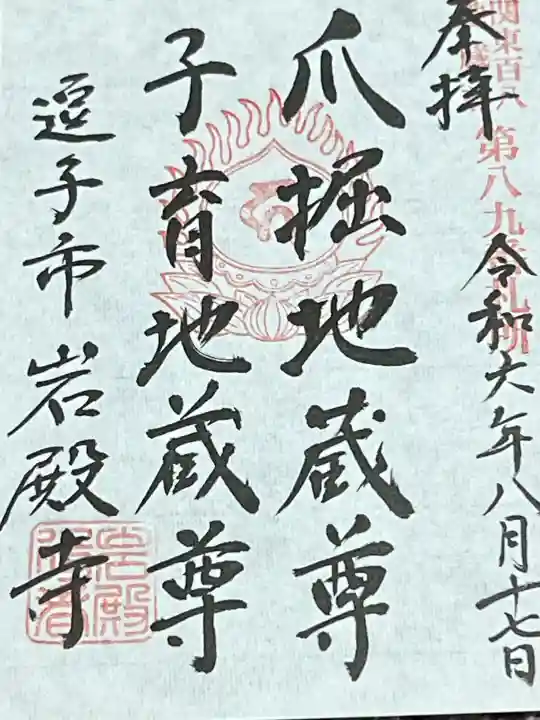 奉拝
関東百八
第八九番札所
令和六年八月十七日
爪掘地蔵尊
子育地蔵尊
逗子市岩殿寺